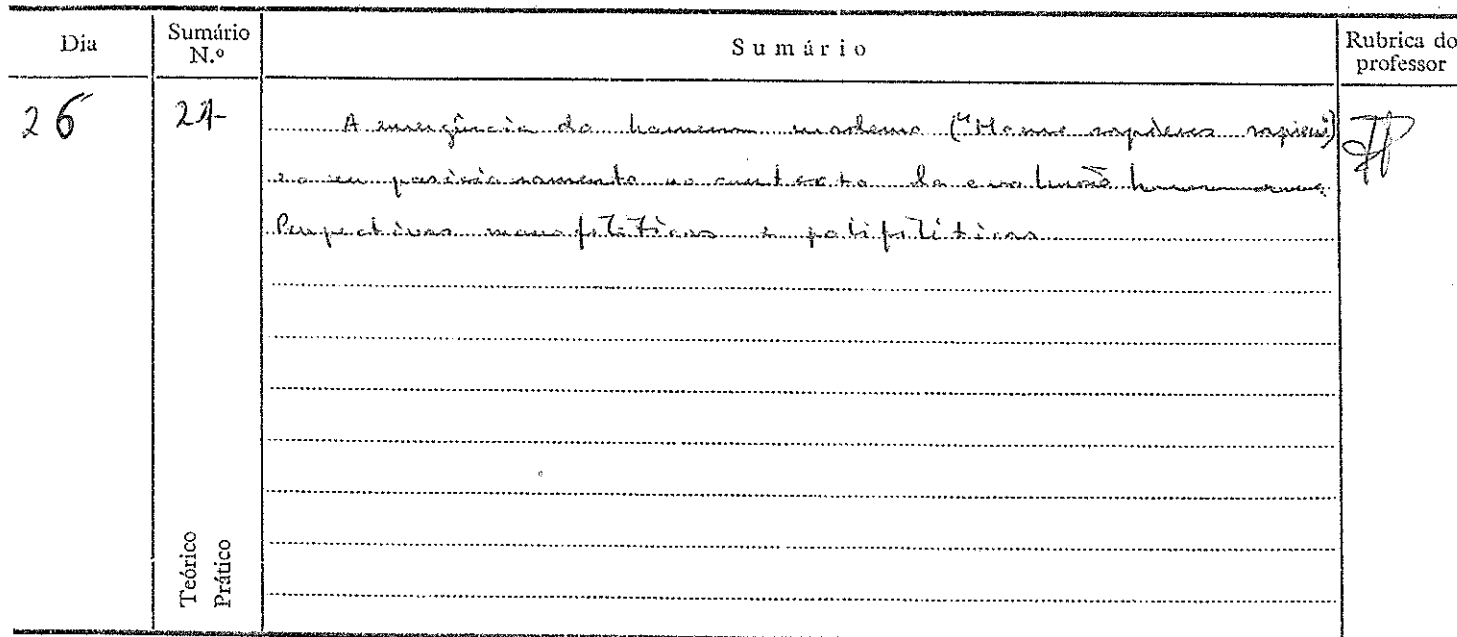 Dia
Sumário N.º
Sumário
Rubrica do professor
26
21
A emergência do homem moderno ("Homo sapiens sapiens")
e o seu posicionamento no contexto da evolução humana.
Perspectivas monofiléticas e polifiléticas
Teórico
Prático